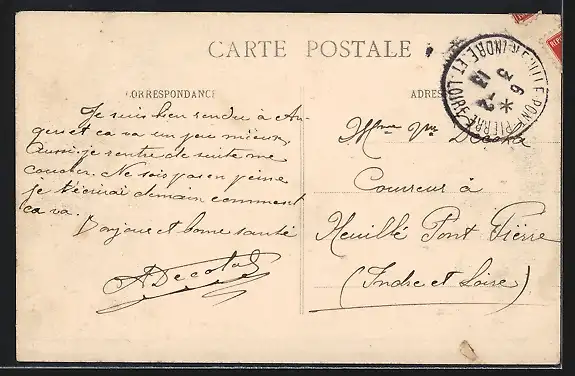 CARTE POSTALE
CORRESPONDANCE
Je suis bien rendu à An-
gers et ca va un peu mieux,
Aussi je rentre de suite me
coucher. Ne sois pas en peine
je t'écrirai demain comment
ca va.
Bonjour et bonne santé
ADecotal
ADRES
Mme Vve
Couvreur à
Neuillé Pont Pierre
(Indre et Loire)
NEUILLE-PONT-PIERRE
INDRE-ET-LOIRE